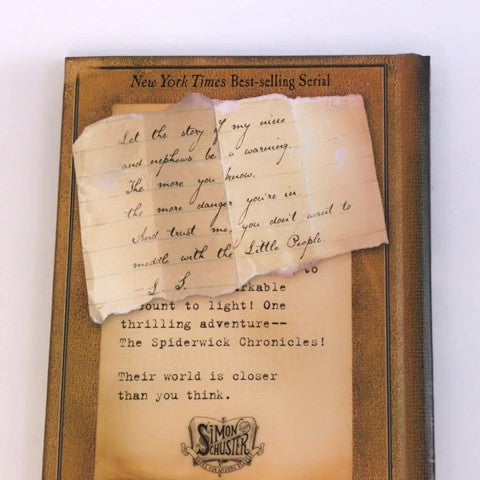 New York Times Best-selling Serial
Let the story of my niece
and nephews be a warning.
The more you know,
the more danger you're in.
And trust me, you don't want to
meddle with the Little People.
—L. S.
to
rkable
ount to light! One
thrilling adventure--
The Spiderwick Chronicles!
Their world is closer
than you think.
SIMON
SCHUSTER